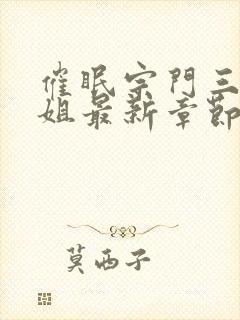 催眠宗門三
姐最新章節
莫西子